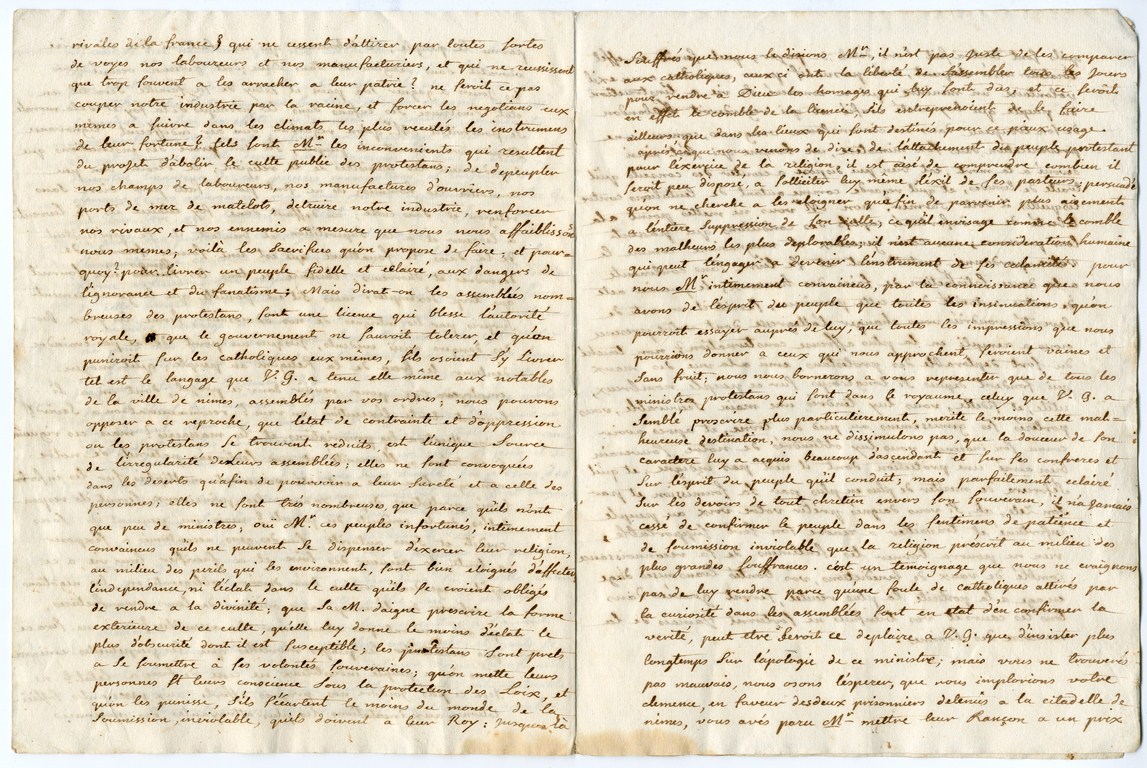 rivales de la france ? qui ne cessent d'attirer par toutes sortes
de voyes nos laboureurs et nos manufacturiers, et qui ne reussissent
que trop souvent a les arracher a leur patrie ? ne seroit ce pas
couper notre industrie par la racine, et forcer les negotians eux
mêmes a suivre dans les climats les plus reculés les instrumens
de leur fortune ? tels sont Mr. les inconvenients qui resultent
du projet d'abolir le culte public des protestans ; de depeupler
nos champs de laboureurs, nos manufactures d'ouvriers, nos
ports de mer de matelots, detruire notre industrie, renforcer
nos rivaux, et nos ennemis a mesure que nous nous affaiblissons
nous memes, voilà les sacrifices qu'on propose de faire, et pour=
quoy ? pour livrer un peuple fidelle et eclairé, aux dangers de
l'ignorance et du fanatisme ; Mais dirat-on les assemblées nom=
breuses des protestans, sont une licence qui blesse l'autorité
royale, que le gouvernement ne sauroit tolerer, et qu'on
puniroit sur les catholiques eux mêmes, s'ils osoient s'y livrer
tel est le langage que V. G. a tenu elle même aux notables
de la ville de nimes, assemblés par vos ordres ; nous pouvons
opposer a ce reproche, que l'état de contrainte et d'oppression
ou les protestans se trouvent reduits, est l'unique source
de l'irregularité de leurs assemblées ; elles ne sont convoquées
dans les deserts qu'afin de pourvoir a leur sureté et a celle des
personnes ; elles ne sont trés nombreuses, que parce qu'ils n'ont
que peu de ministres ; oui Mr. ces peuples infortunés, intimement
convaincus qu'ils ne peuvent se dispenser d'exercer leur religion,
au milieu des perils qui les environnent, sont bien eloignés d'affecter
l'independance, ni l'éclat dans le culte qu'ils se croient obligés
de rendre a la divinité ; que sa M. daigne prescrire la forme
exterieure de ce culte, qu'elle luy donne le moins d'éclat le
plus d'obscurité dont il est susceptible ; les protestans sont prets
a se soumettre à ses volontés souveraines ; qu'on mette leurs
personnes et leurs conscience sous la protection des Loix, et
qu'on les punisse, s'ils s'écartent le moins du monde de la
soumission, inviolable, qu'ils doivent a leur Roy : jusques là
souffrés que nous le disions Mr. il n'est pas juste de les comparer
aux catholiques, ceux ci ont la liberté de s'assembler tous les jours
pour rendre a Dieu les homages qui luy sont dus, et ce seroit
en effet le comble de la licence, s'ils entreprenoient de le faire
ailleurs que dans les lieux qui sont destinés pour ce pieux usage
après ce que nous venons de dire de l'attachement du peuple protestant
pour l'exercice de la religion, il est aisé de comprendre combien il
seroit peu disposé, a solliciter luy même l'exil de ses pasteurs ; persuadé
qu'on ne cherche a les eloigner qu'afin de parvenir plus aisement
a l'entiere suppression de son culte, ce qu'il envisage comme le comble
des malheurs les plus deplorables ; il n'est aucune consideration humaine
qui peut l'engager a devenir l'instrument de ses calamités. pour
nous Mr. intimement convaincus, par la connoissance que nous
avons de l'esprit du peuple que toutes les insinuations qu'on
pourroit essayer auprès de luy, que toutes les impressions que nous
pourrions donner a ceux qui nous approchent, seroient vaines et
sans fruit ; nous nous bornerons a vous representer que de tous les
ministres protestans qui sont dans le royaume, celuy que V. G. a
semblé proscrire plus particulierement, merite le moins cette mal=
heureuse destination, nous ne dissimulons pas, que la douceur de son
caractere luy a acquis beaucoup d'ascendant et sur ses confreres et
sur l'esprit du peuple qu'il conduit ; mais parfaitement eclairé
sur les devoirs de tout chretien envers son souverain, il n'a jamais
cessé de confirmer le peuple dans les sentimens de patience et
de soumission inviolable que la religion prescrit au milieu des
plus grandes souffrances. c'est un temoignage que nous ne craignons
pas de luy rendre parce qu'une foule de catholiques attirés par
la curiosité dans les assemblées sont en etat d'en confirmer la
verité, peut être seroit ce deplaire a V. G. que d'insister plus
longtemps sur l'apologie de ce ministre ; mais vous ne trouverés
pas mauvais, nous osons l'esperer, que nous implorions votre
clemence, en faveur des deux prisonniers detenus a la citadelle de
nimes, vous avés paru Mr. mettre leur Rançon a un prix